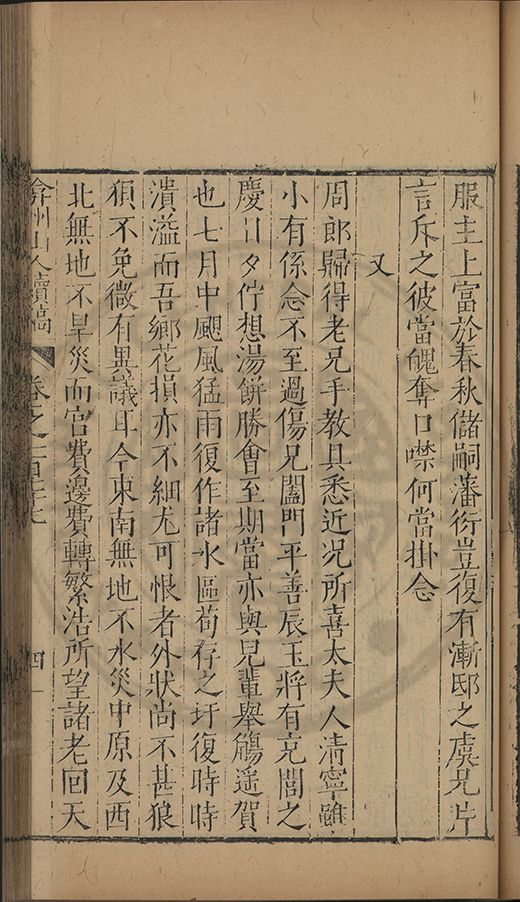 服主上富於春秋儲嗣藩衍豈復有漸邸之虞兄片
言斥之彼當魄奪口噤何當掛念
又
周郎歸得老兄手教具悉近况所喜太夫人清寧雖
小有係念不至過傷兄闔門平善辰玉將有充閭之
慶日夕佇想湯餅勝會至期當亦與兄輩舉觴遥賀
也七月中颶風猛雨復作諸水區苟存之圩復時時
潰溢而吾鄉花損亦不細尤可恨者外狀尚不甚狼
狽不免微有異議耳今東南無地不水災中原及西
北無地不旱災而宫費邊費轉繁浩所望諸老回天
弇州山人續稿 卷之一百七十七 四